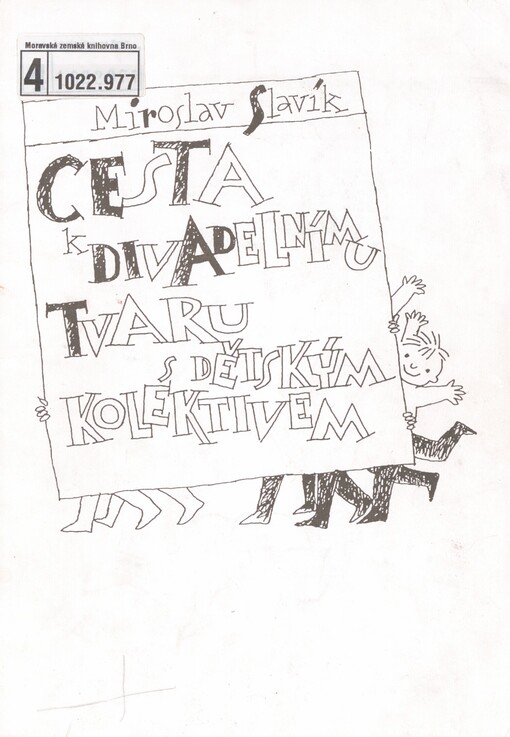 Moravská zemská knihovna Brno
4 1022.977
Miroslav Slavík
CESTA
k DIVADELNÍMU
TVARU
S DĚTSKÝM
KOLEKTIVEM